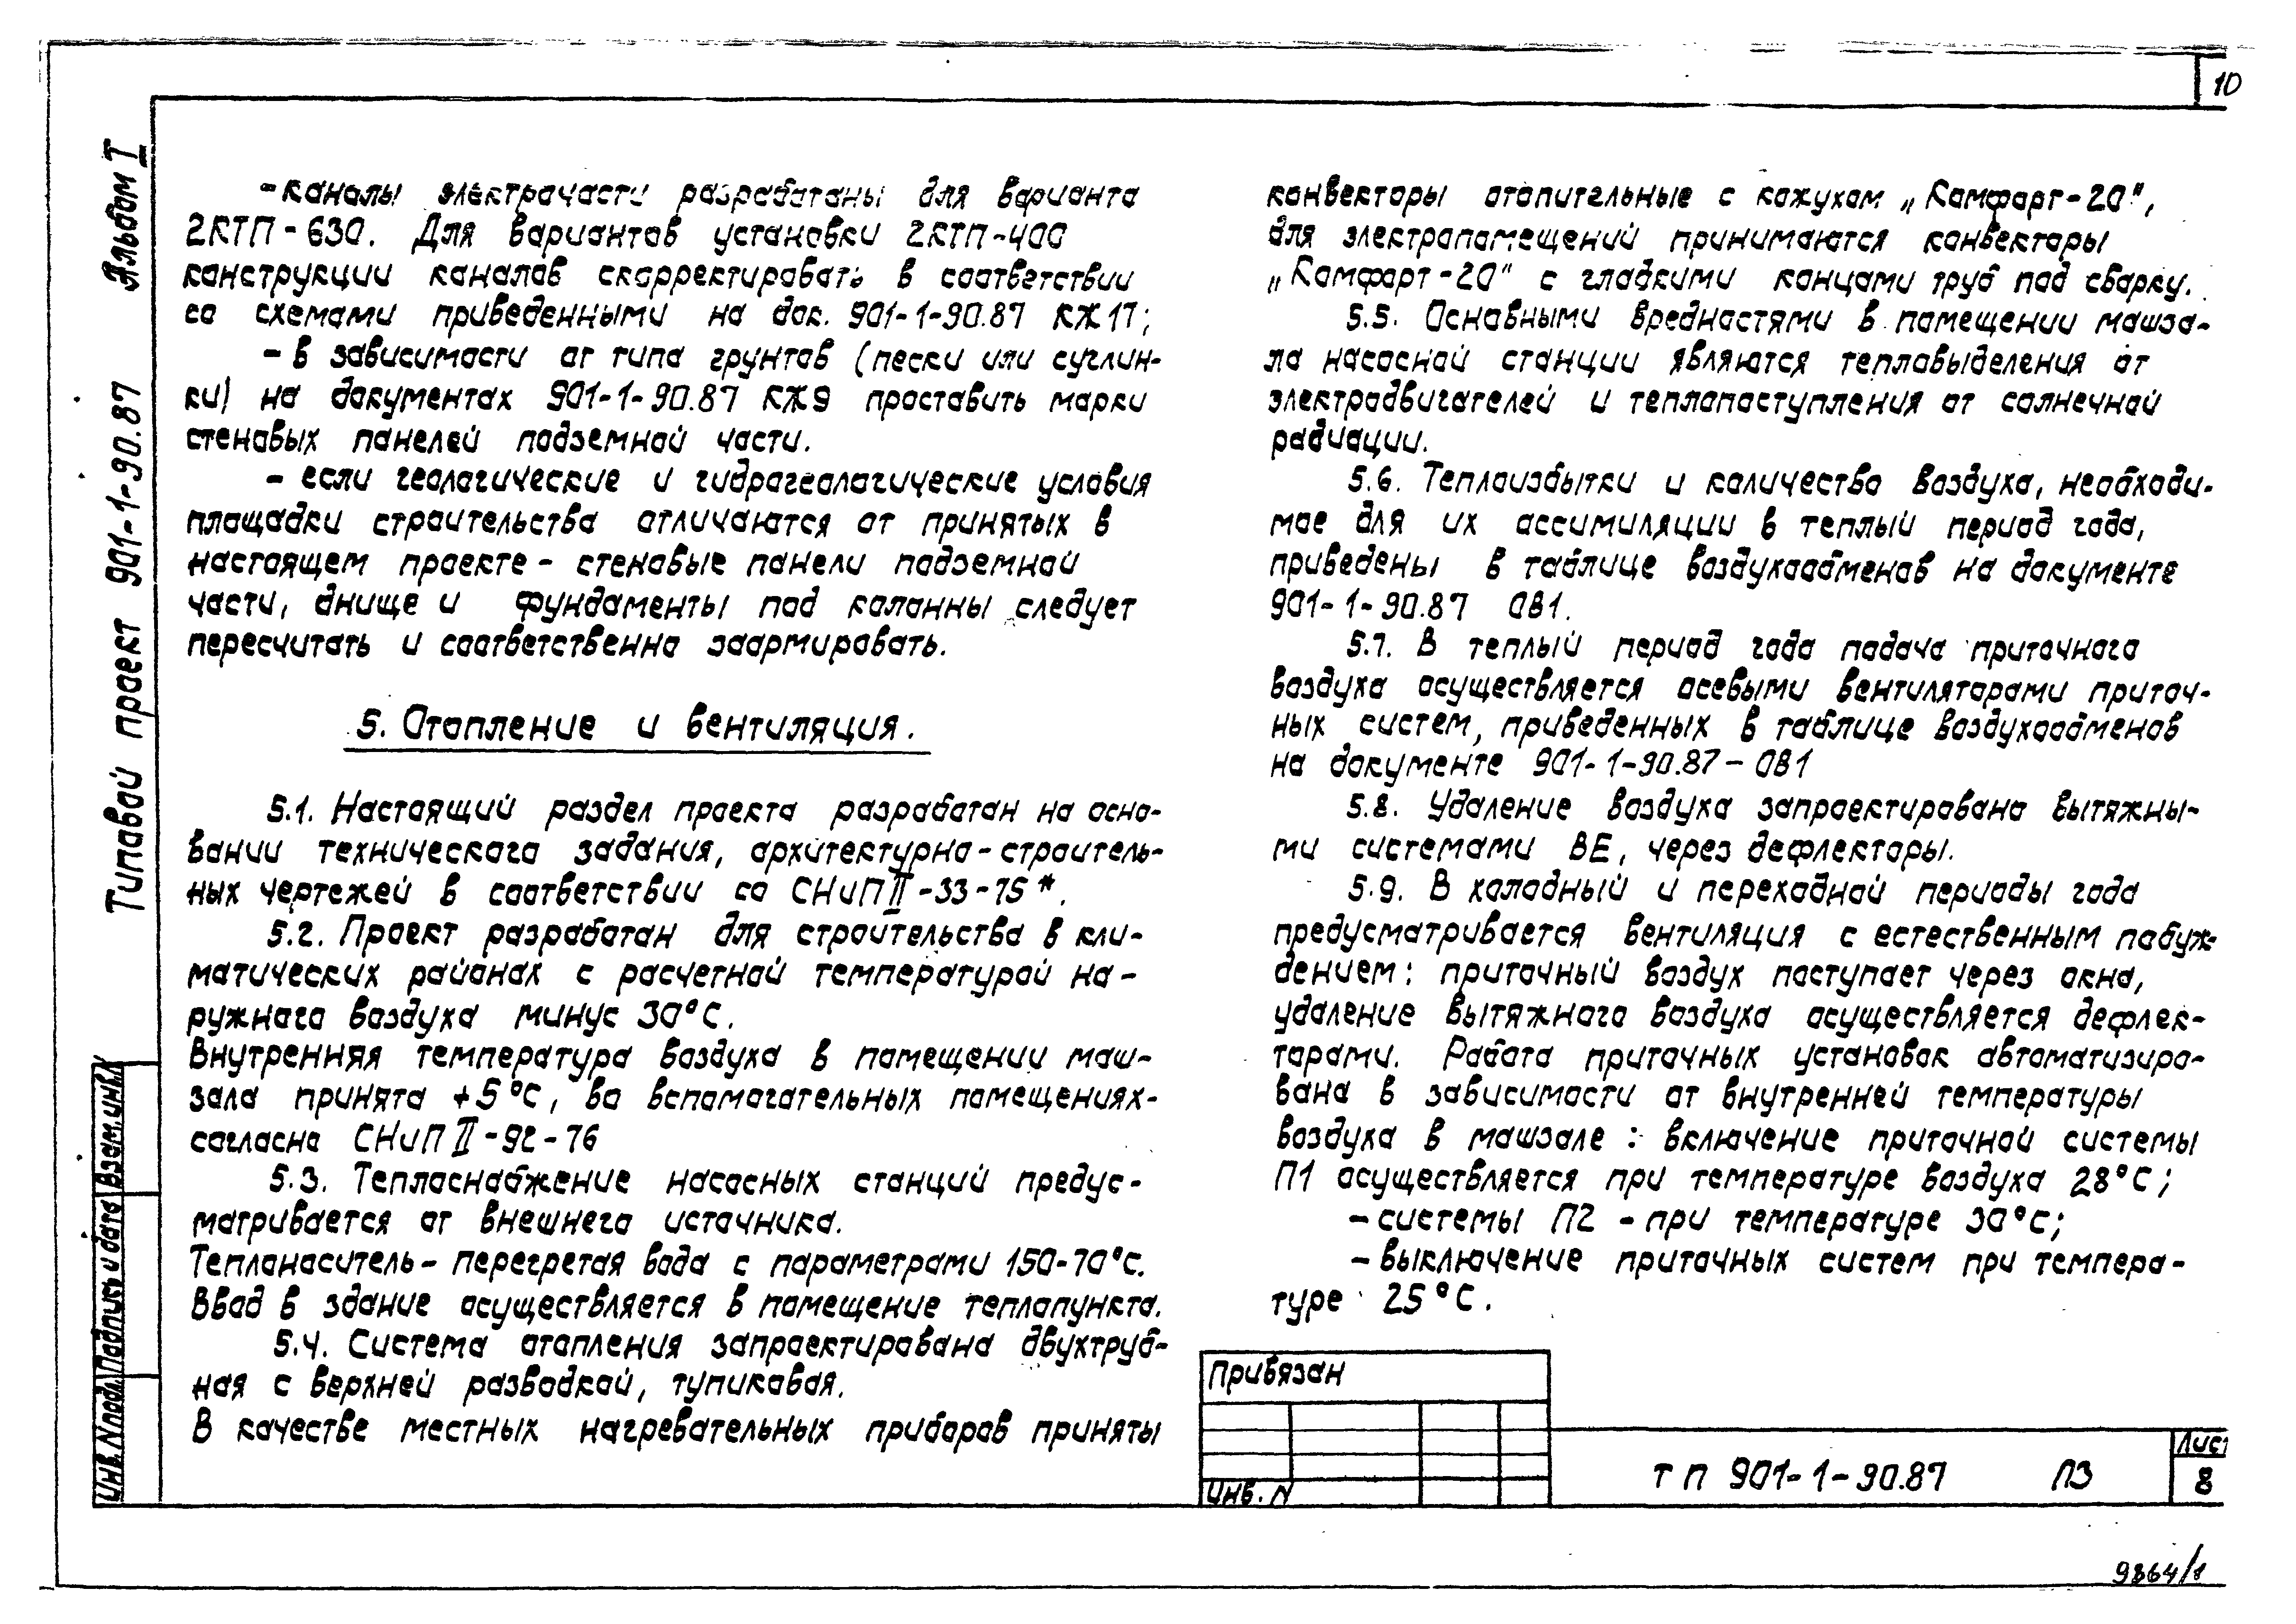 10
Альбом I
Типовой проект 901-1-90.87
- каналы электрочасти разработаны для варианта
2КТП-630. Для вариантов установки 2КТП-400
конструкции каналов скорректировать в соответствии
со схемами приведенными на док. 901-1-90.87 КЖ17;
- в зависимости от типа грунтов (пески или суглин-
ки) на документах 901-1-90.87 КЖ9 проставить марки
стеновых панелей подземной части.
- если геологические и гидрогеологические условия
площадки строительства отличаются от принятых в
настоящем проекте - стеновые панели подземной
части, днище и фундаменты под колонны следует
пересчитать и соответственно заармировать.
5. Отопление и вентиляция.
5.1. Настоящий раздел проекта разработан на осно-
вании технического задания, архитектурно-строитель-
ных чертежей в соответствии со СНиП II-33-75*.
5.2. Проект разработан для строительства в кли-
матических районах с расчетной температурой на-
ружного воздуха минус 30°С.
Внутренняя температура воздуха в помещении маш-
зала принята +5°С, во вспомогательных помещениях-
согласно СНиП II-92-76
5.3. Теплоснабжение насосных станций предус-
матривается от внешнего источника.
Теплоноситель - перегретая вода с параметрами 150-70°С.
Ввод в здание осуществляется в помещение теплопункта.
5.4. Система отопления запроектирована двухтруб-
ная с верхней разводкой, тупиковая.
В качестве местных нагревательных приборов приняты
конвекторы отопительные с кожухом „Комфорт-20",
для электропомещений принимаются конвекторы
„Комфорт-20" с гладкими концами труб под сварку.
5.5. Основными вредностями в помещении машза-
ла насосной станции являются тепловыделения от
электродвигателей и теплопоступления от солнечной
радиации.
5.6. Теплоизбытки и количество воздуха, необходи-
мое для их ассимиляции в теплый период года,
приведены в таблице воздухообменов на документе
901-1-90.87 ОВ1.
5.7. В теплый период года подача приточного
воздуха осуществляется осевыми вентиляторами приточ-
ных систем, приведенных в таблице воздухообменов
на документе 901-1-90.87 - ОВ1
5.8. Удаление воздуха запроектировано вытяжны-
ми системами ВЕ, через дефлекторы.
5.9. В холодный и переходной периоды года
предусматривается вентиляция с естественным побуж-
дением: приточный воздух поступает через окна,
удаление вытяжного воздуха осуществляется дефлек-
торами. Работа приточных установок автоматизиро-
вана в зависимости от внутренней температуры
воздуха в машзале: включение приточной системы
П1 осуществляется при температуре воздуха 28°С;
- системы П2 - при температуре 30°С;
- выключение приточных систем при темпера-
туре 25°С.
Инв. N подл. Подпись и дата Взам. инв. N
Привязан
Инв. N
ТП 901-1-90.87 ПЗ
Лист
8
9864/1